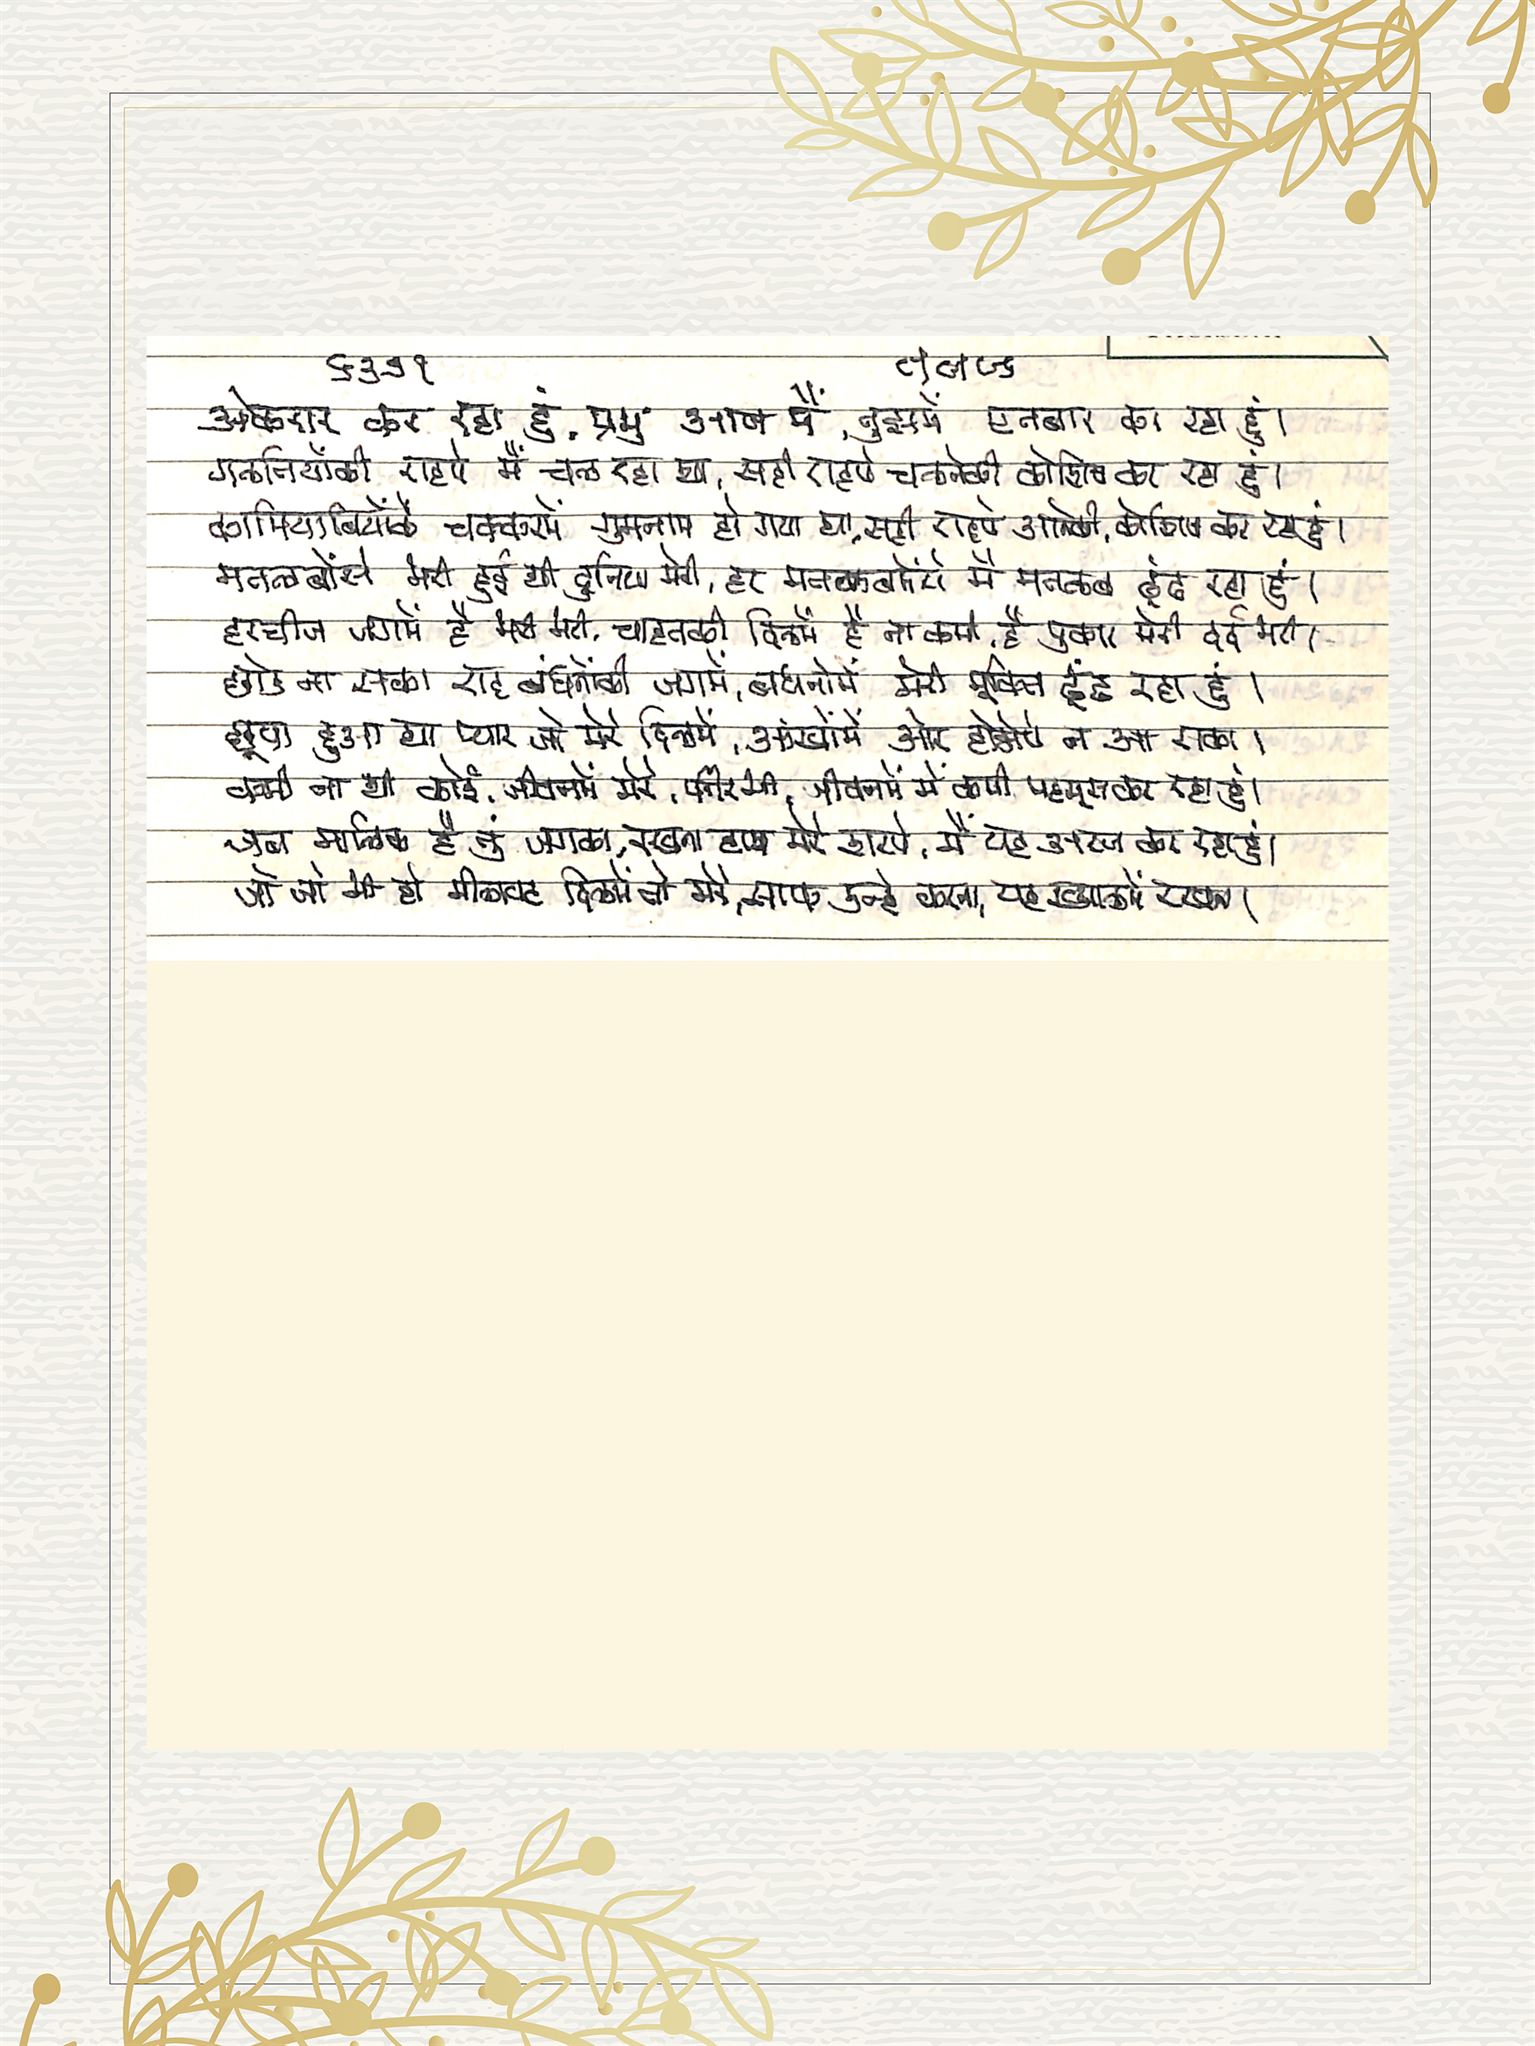 अेकरार कर रहा हुं, प्रभु आज मैं, तुझमें एतबार कर रहा हुं।
गलतियोंकी राहपे मैं चल रहा था, सही राहपे चलनेकी कोशिष कर रहा हुं।
कामियाबियोंके चक्करमें गुमनाम हो गया था, सही राहपे आनेकी, कोशिष कर रहा हुं।
मतलबोंसे भरी हुई थी दुनिया मेरी, हर मतलबोंसे मैं मतलब ढूंढ रहा हुं।
हरचीज जगमें है भरी भरी, चाहतकी दिलमें है ना कमी, है पुकार मेरी दर्द भरी।
छोड ना सका राह बंधनोंकी जगमें, बंधनोमें मेरी मुक्ति ढूंढ रहा हुं।
छूपा हुआ था प्यार जो मेरे दिलमें, आंखोंमें और होठोंपे न आ सका।
कमी ना थी कोई, जीवनमें मेरे, फिरभी, जीवनमें में कमी महसूस कर रहा हुं।
जब मालिक है तुं जगका, रखना हाथ मेरे शिरपे, मैं यह अरज कर रहा हुं।
जो जो भी हो मीलावट दिलमें तो मेरे, साफ उन्हे करना, यह ख्यालमें रखना।